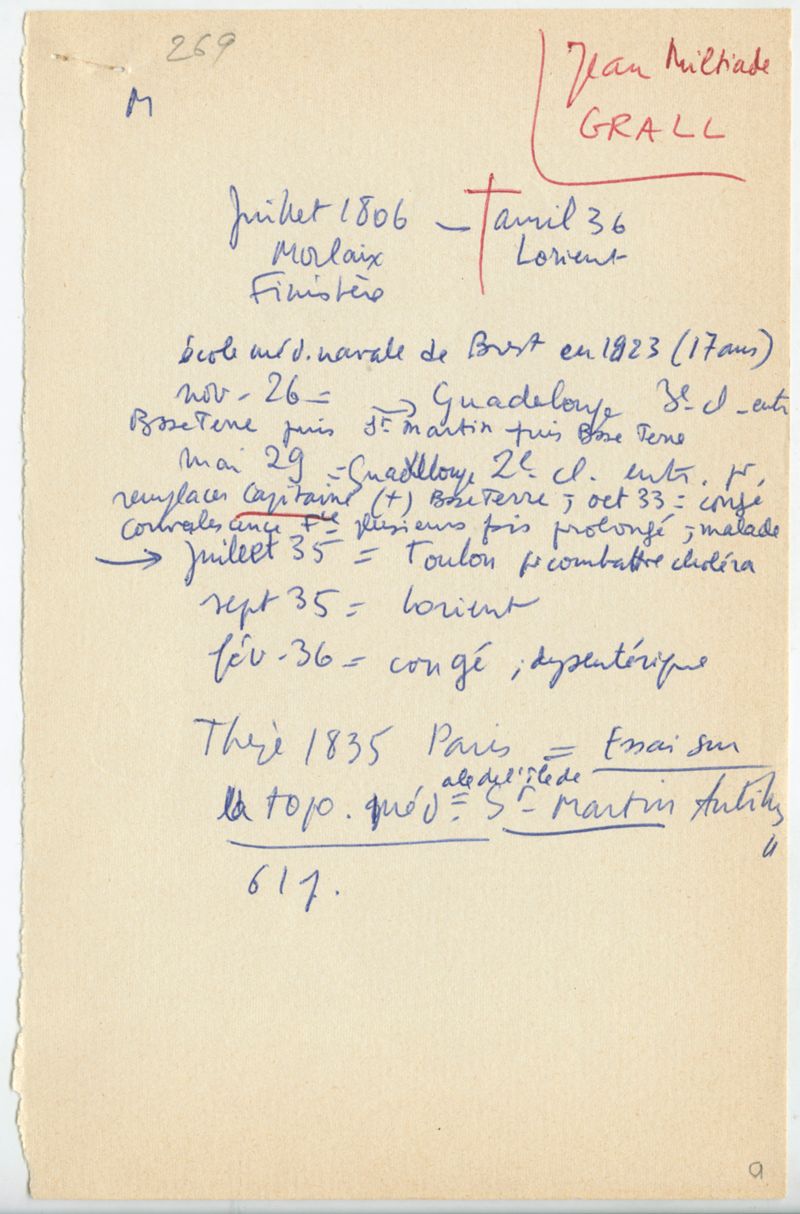 269
M
Jean Miltiade
GRALL
Juillet 1806 – † avril 36
Morlaix Lorient
Finistère
école méd. navale de Brest en 1923 (17 ans)
nov - 26 = → Guadeloupe 3e cl - entr
Basse Terre puis St Martin puis Basse Terre
mai 29 = Guadeloupe 2e cl. entr. pr
remplacer Capitaine (+) Basse Terre ; oct 33 = congé
convalescence Fce plusieurs fois prolongé ; malade
→ juillet 35 = Toulon pr combattre choléra
sept 35 = Lorient
fév - 36 = congé ; dysentérique
Thèse 1835 Paris = Essai sur
ale de l'île de
la topo. méd = St - Martin Antilles
"
61 p.
a